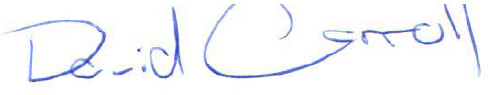 David Carroll